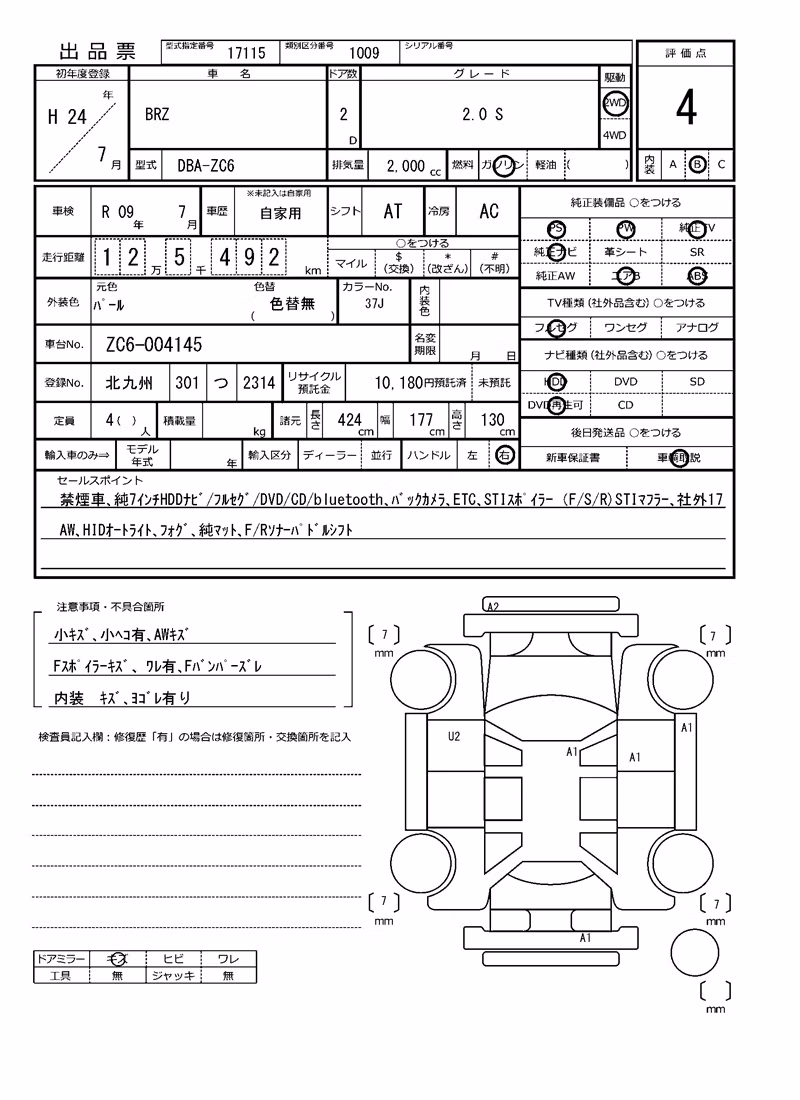 出品票 型式指定番号 17115 類別区分番号 1009 シリアル番号
評価点
4
内装 A B C
初年度登録 車名 ドア数 グレード 駆動
H 24 年 7 月 BRZ 2 D 2.0 S 2WD 4WD
型式 DBA-ZC6 排気量 2,000 cc 燃料 ガソリン 軽油 ( )
車検 R 09 年 7 月 車歴 ※未記入は自家用 自家用 シフト AT 冷房 AC
走行距離 1 2 万 5 千 4 9 2 km
○をつける
マイル $ (交換) * (改ざん) # (不明)
外装色 元色 パール 色替 色替無 ( ) カラーNo. 37J 内装色
車台No. ZC6-004145 名変期限 月 日
登録No. 北九州 301 つ 2314 リサイクル預託金 10,180円預託済 未預託
定員 4( ) 人 積載量 kg 諸元 長さ 424 cm 幅 177 cm 高さ 130 cm
輸入車のみ⇒ モデル年式 年 輸入区分 ディーラー 並行 ハンドル 左 右
純正装備品 ○をつける
PS PW 純正TV
純正ナビ 革シート SR
純正AW エアB ABS
TV種類(社外品含む)○をつける
フルセグ ワンセグ アナログ
ナビ種類(社外品含む)○をつける
HDD DVD SD
DVD再生可 CD
後日発送品 ○をつける
新車保証書 車輌取説
セールスポイント
禁煙車、純7インチHDDナビ/フルセグ/DVD/CD/bluetooth、バックカメラ、ETC、STIスポイラー (F/S/R)STIマフラー、社外17
AW、HIDオートライト、フォグ、純マット、F/Rソナーパドルシフト
注意事項・不具合箇所
小キズ、小ヘコ有、AWキズ
Fスポイラーキズ、ワレ有、Fバンパーズレ
内装 キズ、ヨゴレ有り
検査員記入欄：修復歴「有」の場合は修復箇所・交換箇所を記入
ドアミラー キズ ヒビ ワレ
工具 無 ジャッキ 無
A2
7 mm
7 mm
U2
A1
A1
A1
7 mm
7 mm
A1
mm